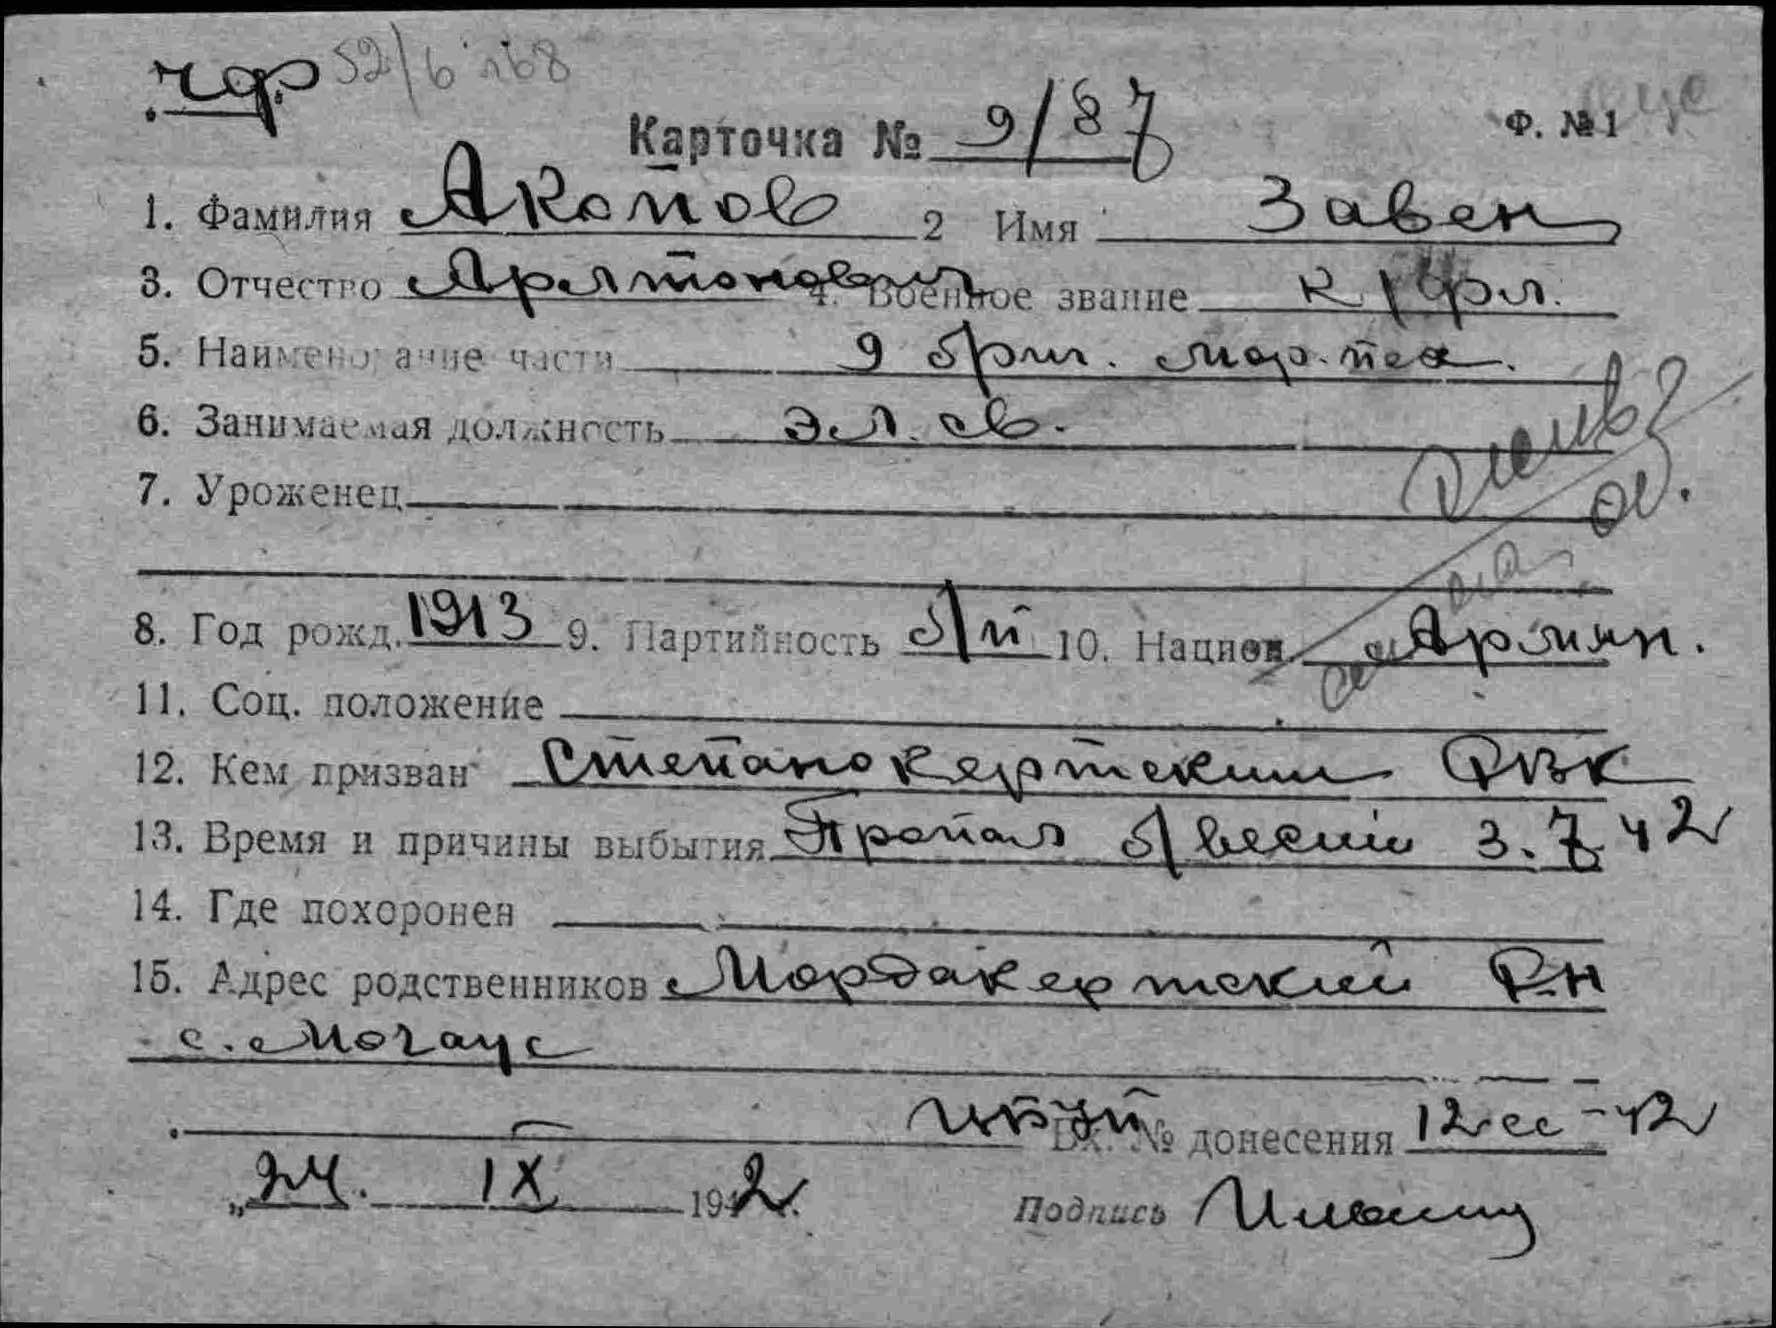 чф 52/6 л68
Карточка № 9/87 Ф. № 1
1. Фамилия Акопов 2 Имя Завен
3. Отчество 4. Военное звание к/фл.
5. Наименование части 9 бриг. мор. пех.
6. Занимаемая должность эл. св.
7. Уроженец
8. Год рожд. 1913 9. Партийность б/п 10. Национ. Армян.
11. Соц. положение
12. Кем призван Степанокертским РВК
13. Время и причины выбытия Пропал б/вести 3.7.42
14. Где похоронен
15. Адрес родственников Мордакертский Р-н
с. Могаус
Вх. № донесения 12сс-42
„24. IX 1942.
Подпись